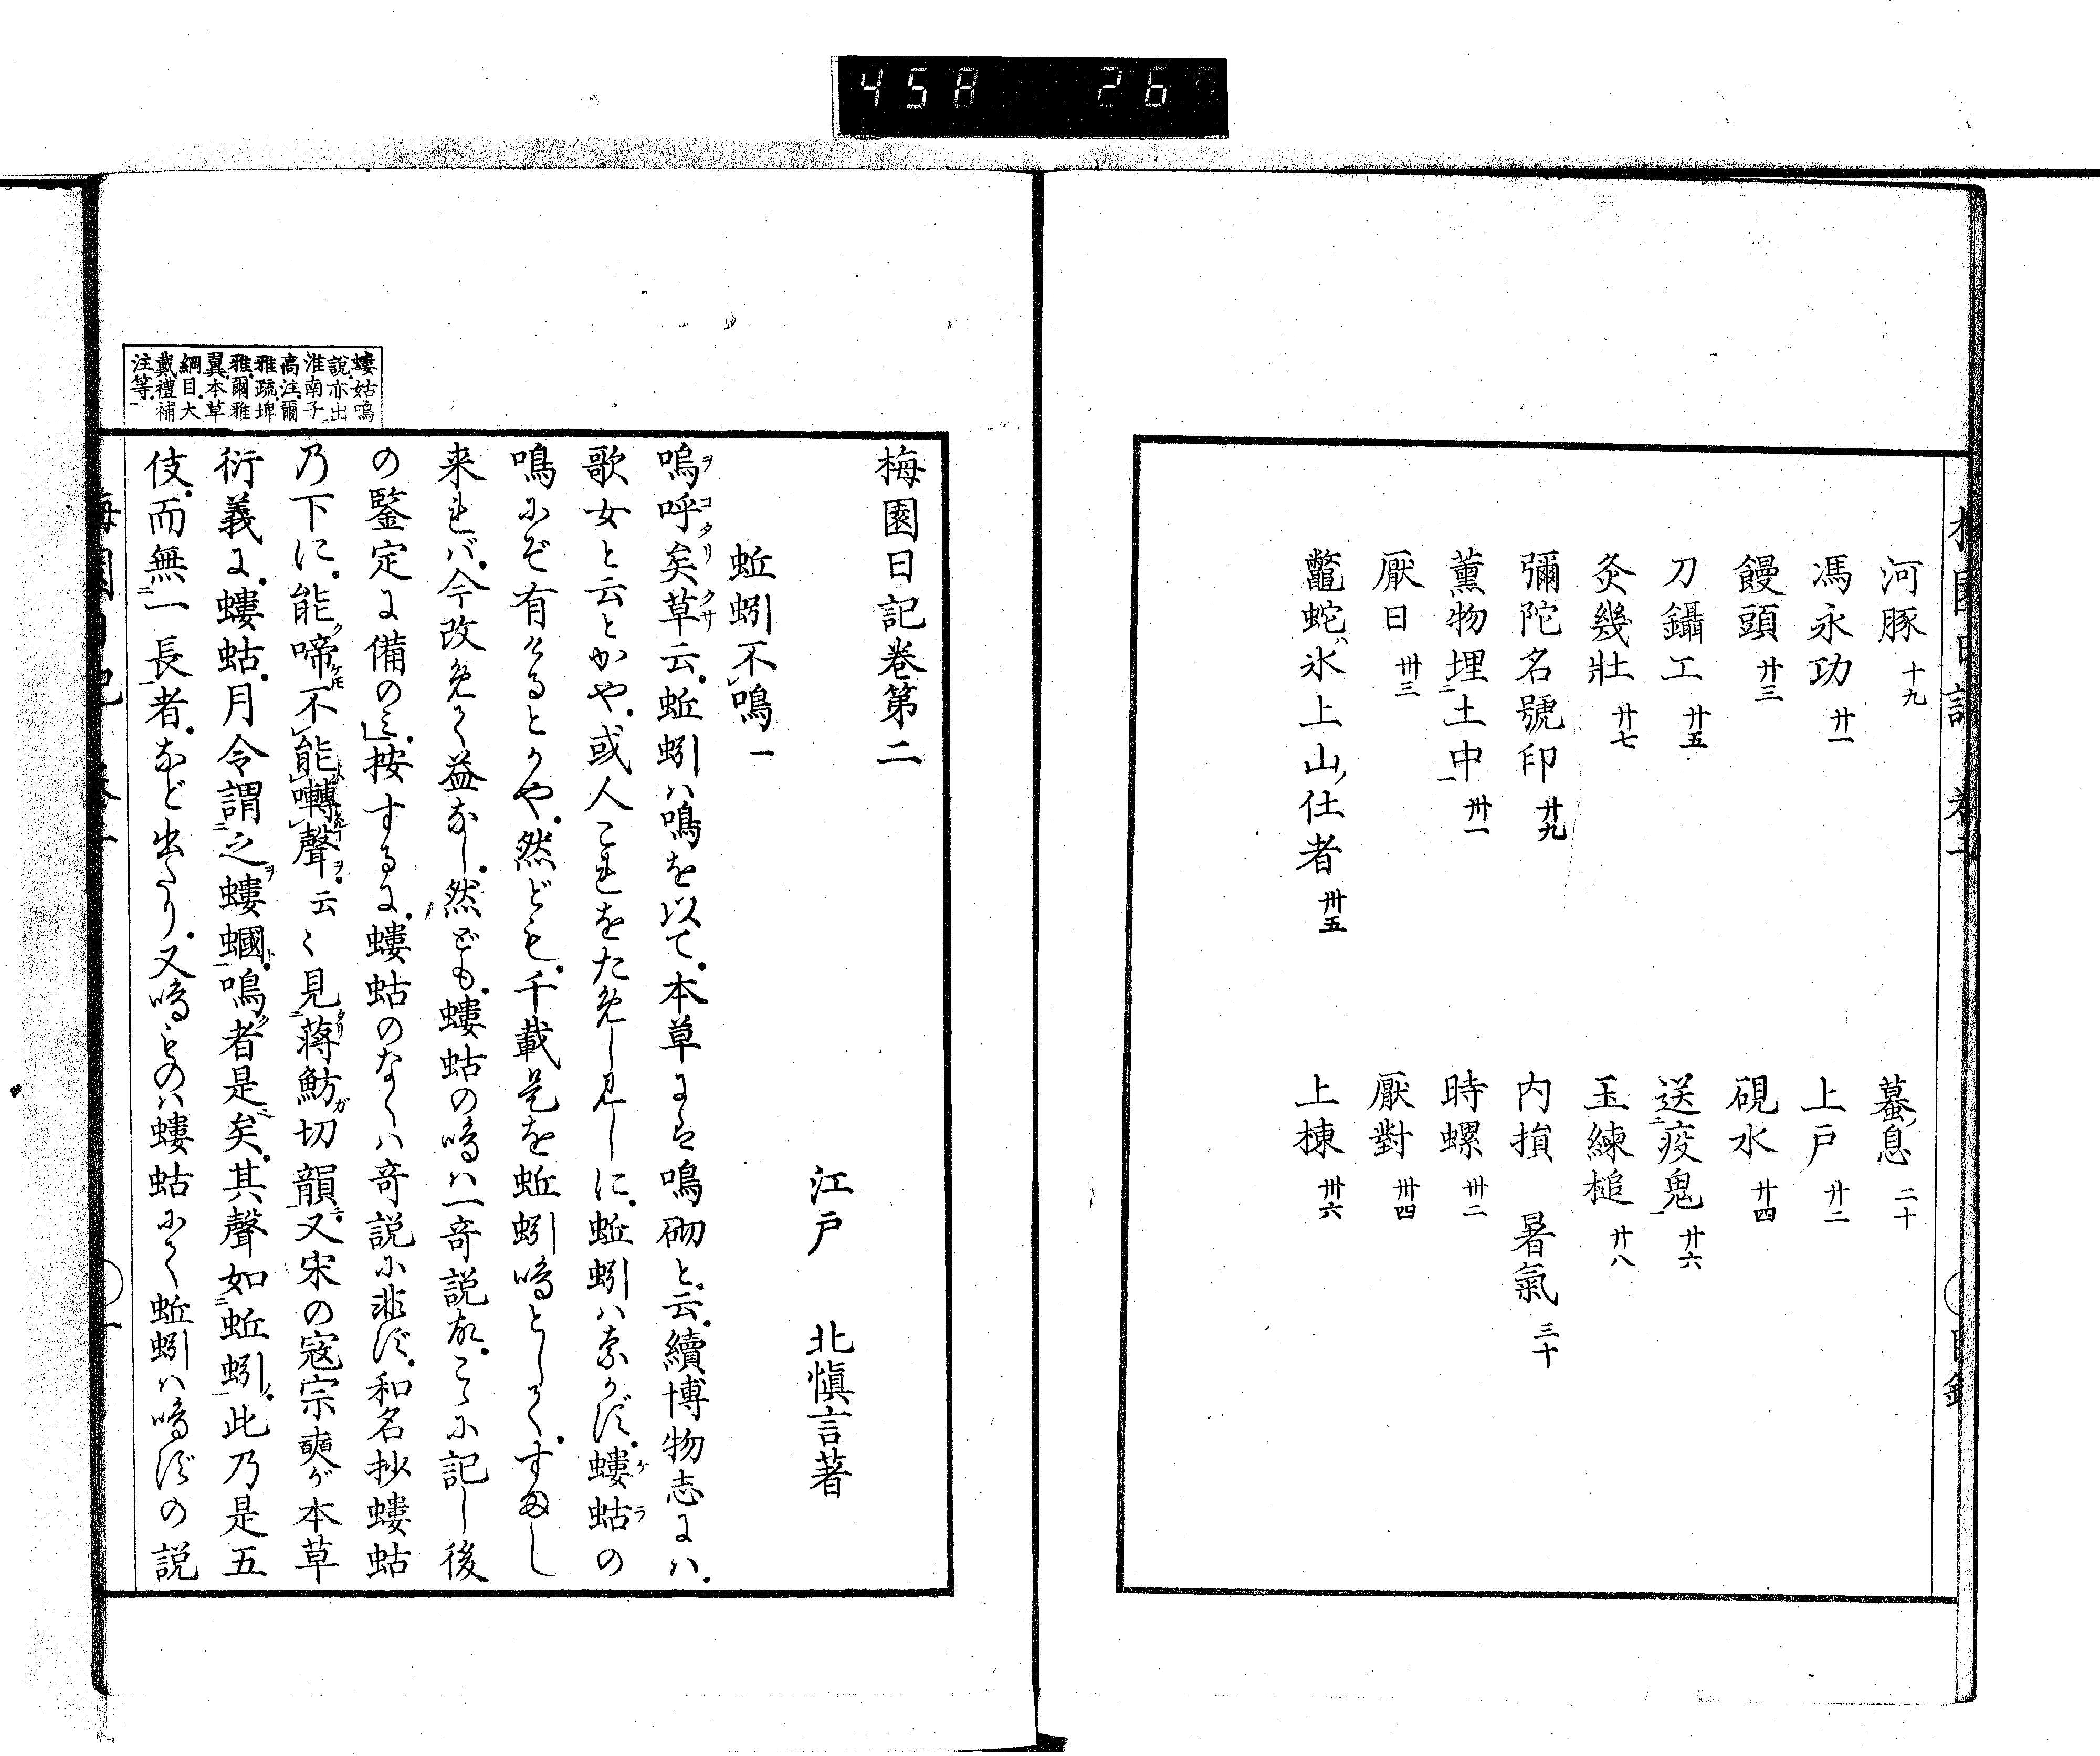 458 26
河豚 十九
蟇ノ息 二十
馮永功 廿一
上戸 廿二
饅頭 廿三
硯水 廿四
刀鑷工 廿五
送疫鬼 廿六
灸幾壮 廿七
玉練槌 廿八
彌陀名號印 廿九
内損 暑氣 三十
薫物埋土中 丗一
時螺 丗二
厭日 丗三
厭對 丗四
鼈蛇ハ氷上山ノ仕者 丗五
上棟 丗六
螻姑鳴
説亦出
淮南子
高注爾
雅疏埤
雅爾雅
翼本草
綱目大
戴禮補
注等
梅園日記卷第二
江戸 北愼言著
蚯蚓不鳴 一
嗚呼矣草云蚯蚓ハ鳴を以て本草にも鳴砌と云續博物志にハ
歌女と云とかや或人これをためし見しに蚯蚓ハ鳴かず螻蛄の
鳴にぞ有けるとかや然ども千載是を蚯蚓鳴としるすめし
来れバ今改めて益なし然ども螻蛄の鳴ハ一奇説故こゝに記し後
の鑒定に備のミ按するに螻蛄のなくハ奇説に非ず和名抄螻蛄
乃下に能啼不能囀聲云々見蒋魴切韻又宋の寇宗奭が本草
衍義に螻蛄月令謂之螻蟈鳴者是矣其聲如蚯蚓此乃是五
伎而無一長者など出たり又鳴ものハ螻蛄にて蚯蚓ハ鳴ずの説